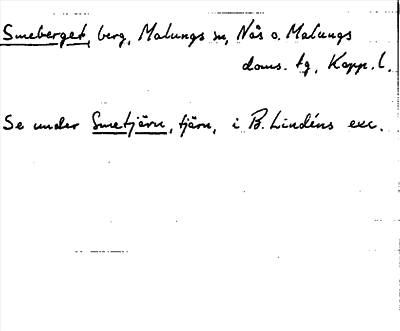 Smeberget, berg, Malungs sn, Nås o. Malungs
doms. tg, Kopp. l.
Se under Smetjärn, tjärn, i B. Lindéns exc.